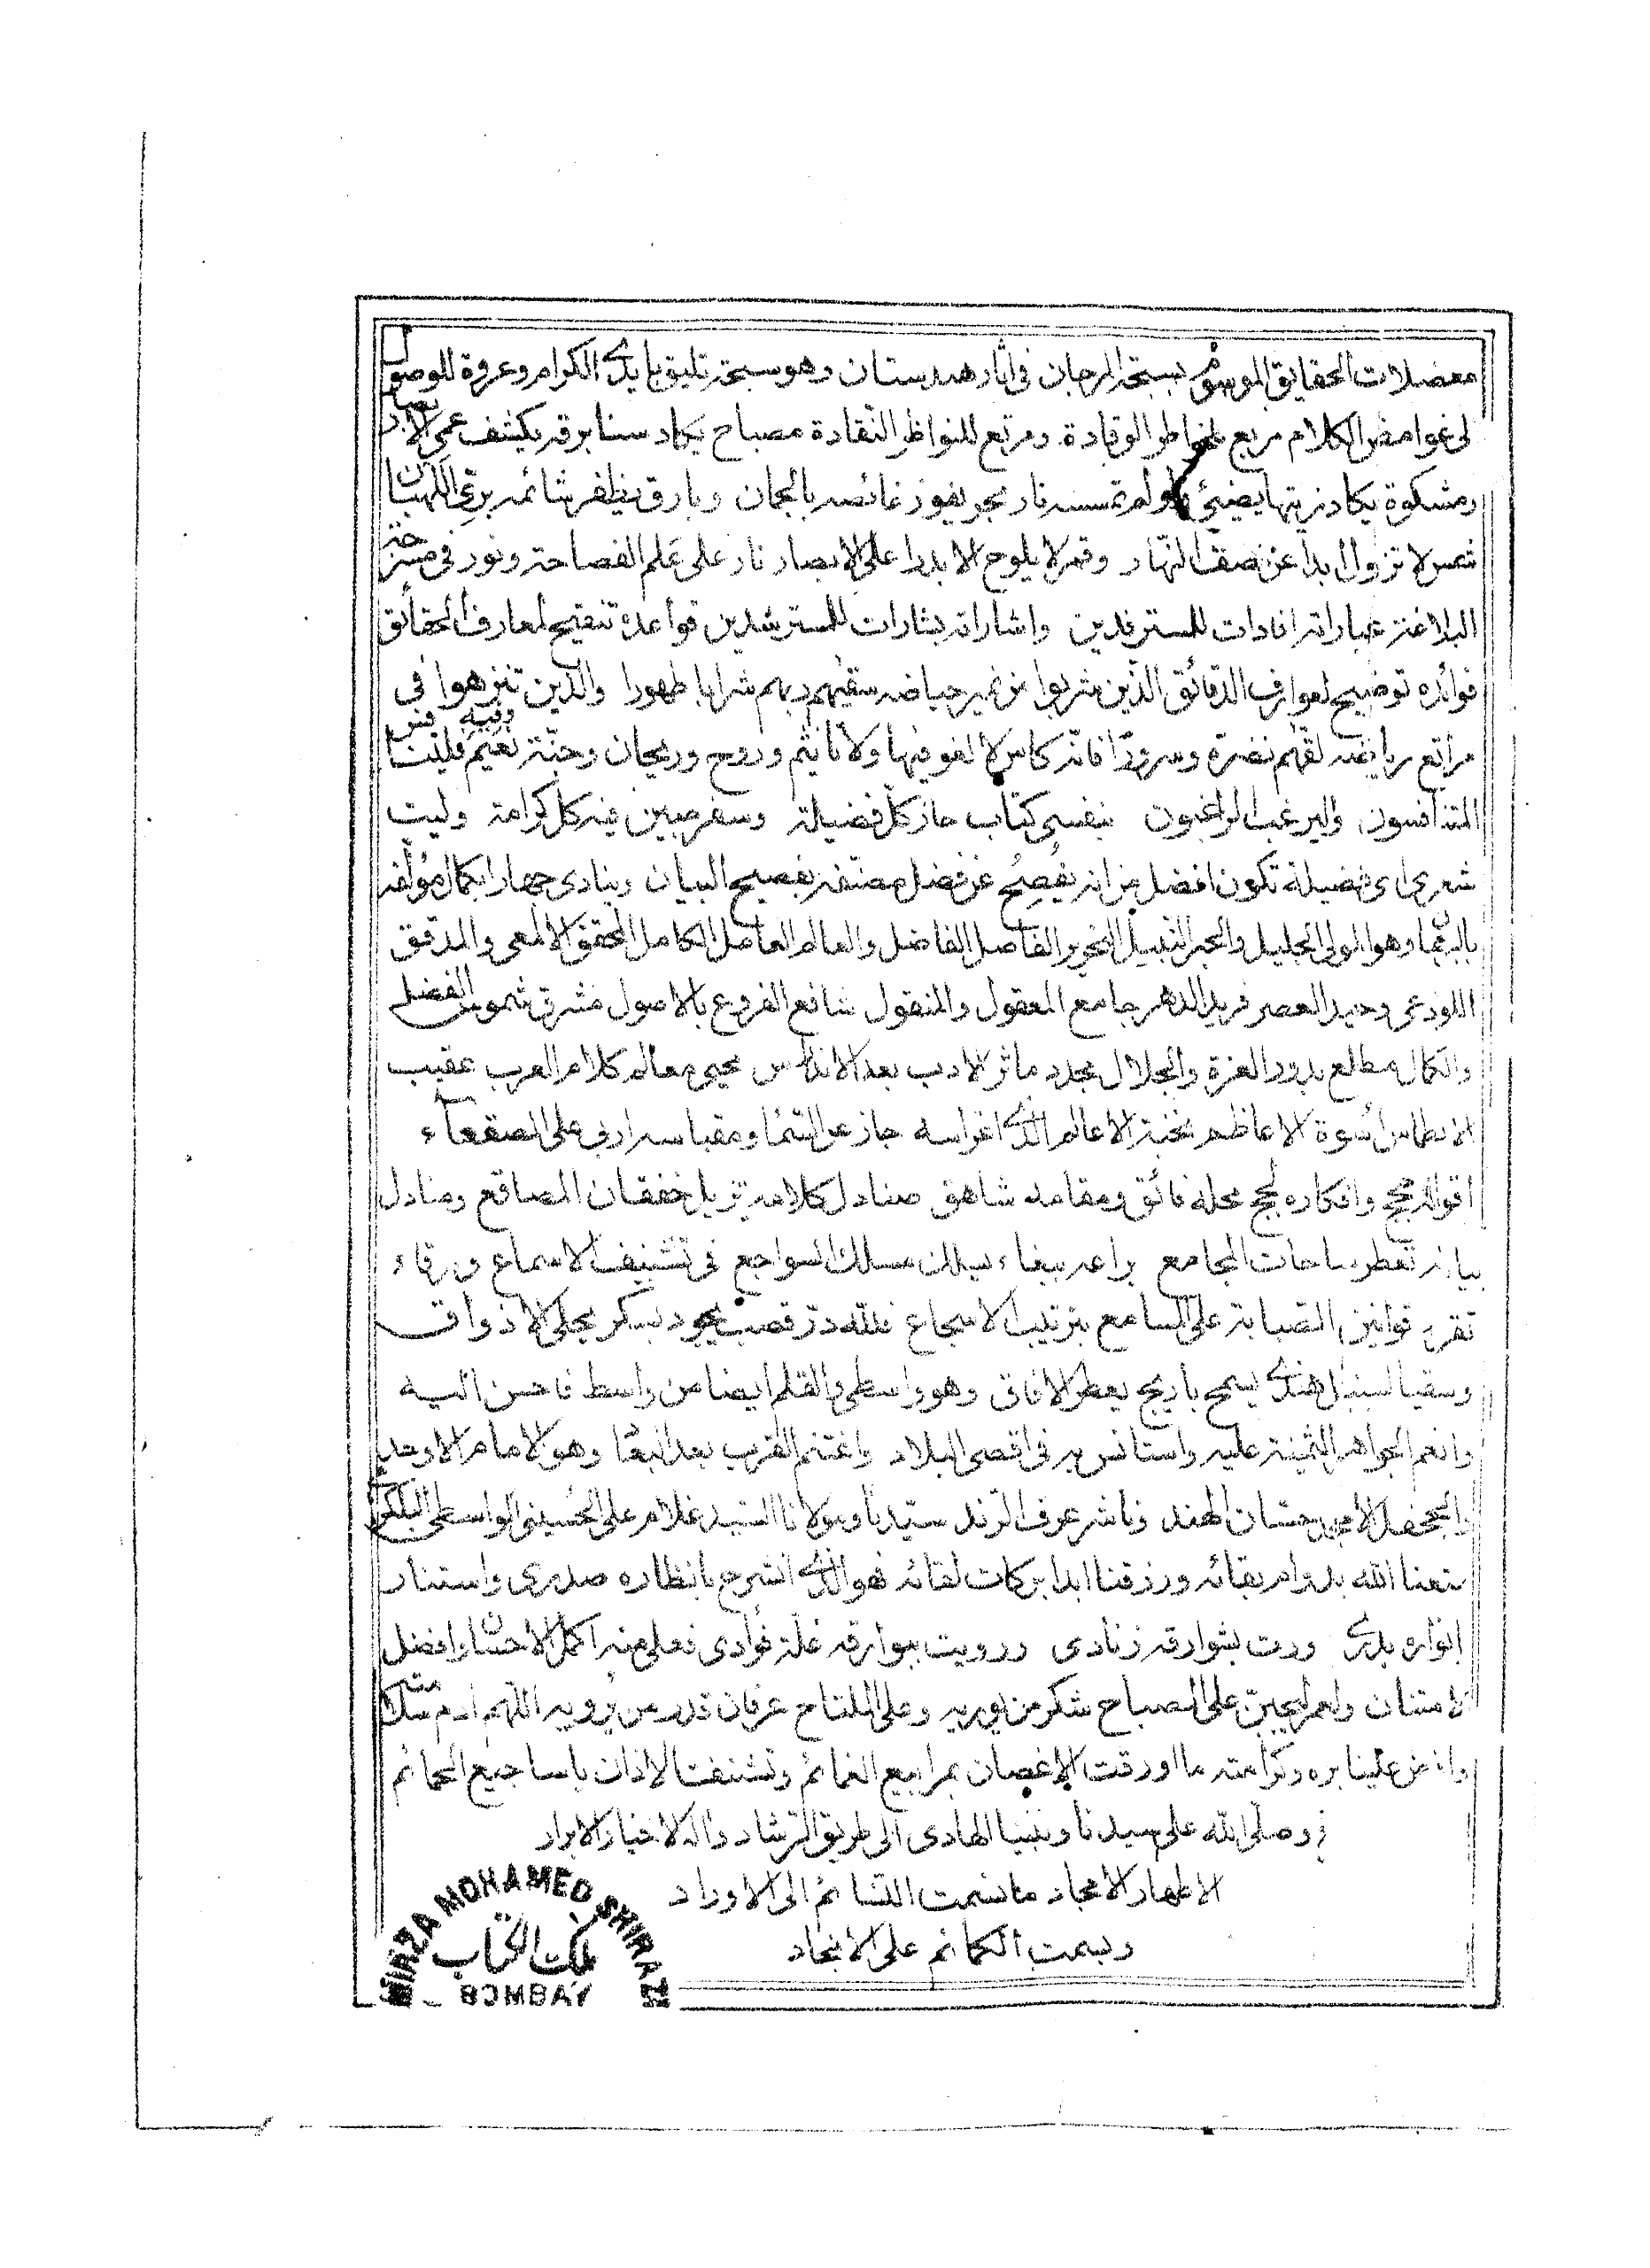 معضلات الحقايق الموسوم بسبحة المرجان في اثار هندستان وهو سبحة تليق بايدي الكرام وعروة للوصول
لى غوامض الكلام مربع للخواطر الوقادة ومرتع للنواظر النقادة مصباح يكاد سنا برقه يكشف عمى الابصار
ومشكوة يكاد زيتها يضيئ ولو لم تمسسه نار بحر يفوز غائصه بالجمان وبارق يظفر شائمه برى اللهبان
شمس لا تزول ابدا عن نصف النهار وقمر لا يلوح الا بدرا على الابصار نار على علم الفصاحة ونور في مسرحة
البلاغة عباراته افادات للمسترفدين واشاراته بشارات للمسترشدين قواعده تنقيح لمعارف الحقائق
فوائده توضيح لعوارف الدقائق الذين شربوا من نمير حياضه سقيهم ربهم شرابا طهورا والذين تنزهوا في
مراتع رياضه لقهم نضرة وسرورا فانه كاس لا لغو فيها ولا تاثيم وروح وريحان وجنة نعيم وفيه فليتنافس
المتنافسون واليه يرغب الراغبون بنفسي كتاب حاز كل فضيلة وسفر مبين فيه كل كرامة وليت
شعرى اى فضيلة تكون افضل من انه يفصح عن فضل مصنفه بفصيح البيان وينادى جهارا بكمال مؤلفه
بالبرهان وهو المولى الجليل والحبر النبيل النحرير الفاصل الفاضل والعالم العامل الكامل المحقق الالمعى والمدقق
اللوذعى وحيد العصر فريد الدهر جامع المعقول والمنقول شافع الفروع بالاصول مشرق شموس الفضل
والكمال مطلع بدور العزة والجلال مجدد ماثر الادب بعد الاندراس محيى معالم كلام العرب عقيب
الانطماس اسوة الاعاظم نخبة الاعالم الذي اغراسه جاز عن السماء ومقباسه اربى على الصقعاء
اقواله حجج وافكاره لجج محله فائق ومقامه شاهق صنادل كلامه تزيل خفقان المصاقع ومنادل
بيانه تعطر ساحات المجامع يراعه ببغاء يسلك مسلك السواجع في تشنيف الاسماع ورقاء
تقرر قوانين الصبابة على السامع بترتيب الاسجاع فلله در قصب يجود بسكر يحلى الاذواق
وسقيا لسنبل هندي يسمح باريج يعطر الافاق وهو واسطى والقلم ايضا من واسط فاحسن اليه
وانعم الجواهر الثمينة عليه واستانس به في اقصى البلاد واغتنم القرب بعد البعاد وهو الامام الاوحد
والجحفل الامجد حسان الهند وناشر عرف الرند سيدنا ومولانا السيد غلام على الحسينى الواسطى البلكرامى
متعنا الله بدوام بقائه ورزقنا ابدا بركات لقائه فهو الذي انشرح بانظاره صدرى واستنار
بانواره بدري وورت بشوارقه زنادى ورويت ببوارقه غلة فؤادى فعلى منه اكمل الاحسان وافضل
الامتنان ولعمرى يجب على المصباح شكر من يوريه وعلى الملتاح عرفان قدر من يرويه اللهم ادم
وافض علينا بره وكرامته ما اورقت الاغصان بمرابيع الغمائم وتشنفت الاذان باساجيع الحمائم
وصلى الله على سيدنا ونبينا الهادى الى طريق الرشاد واله الاخيار الابرار
الاطهار الامجاد ما نسمت النسائم الى الاوراد
وبسمت الكمائم على الانجاد
MIRZA MOHAMED SHIRAZI
ملك الكتاب
BOMBAY